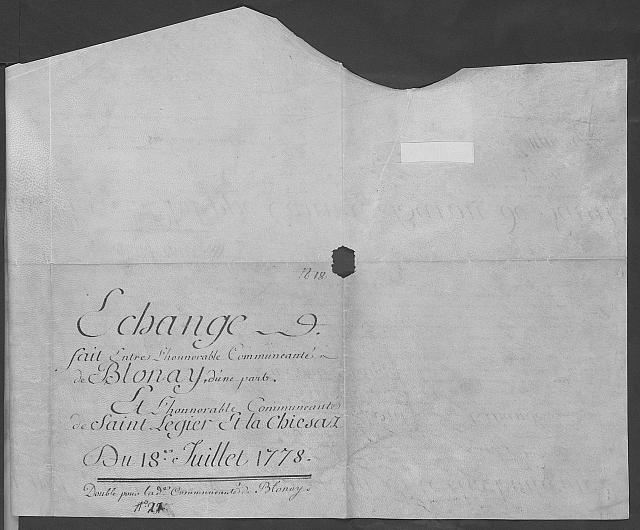 N° 18
Echange
fait Entre L'honnorable Communeauté
de Blonay, d'une part.
Et L'honnorable Communeauté
de Saint Légier Et la Chiesaz
Du 18.e Juillet 1778.
Double pour la d.e Communeauté de Blonay.
N° 21